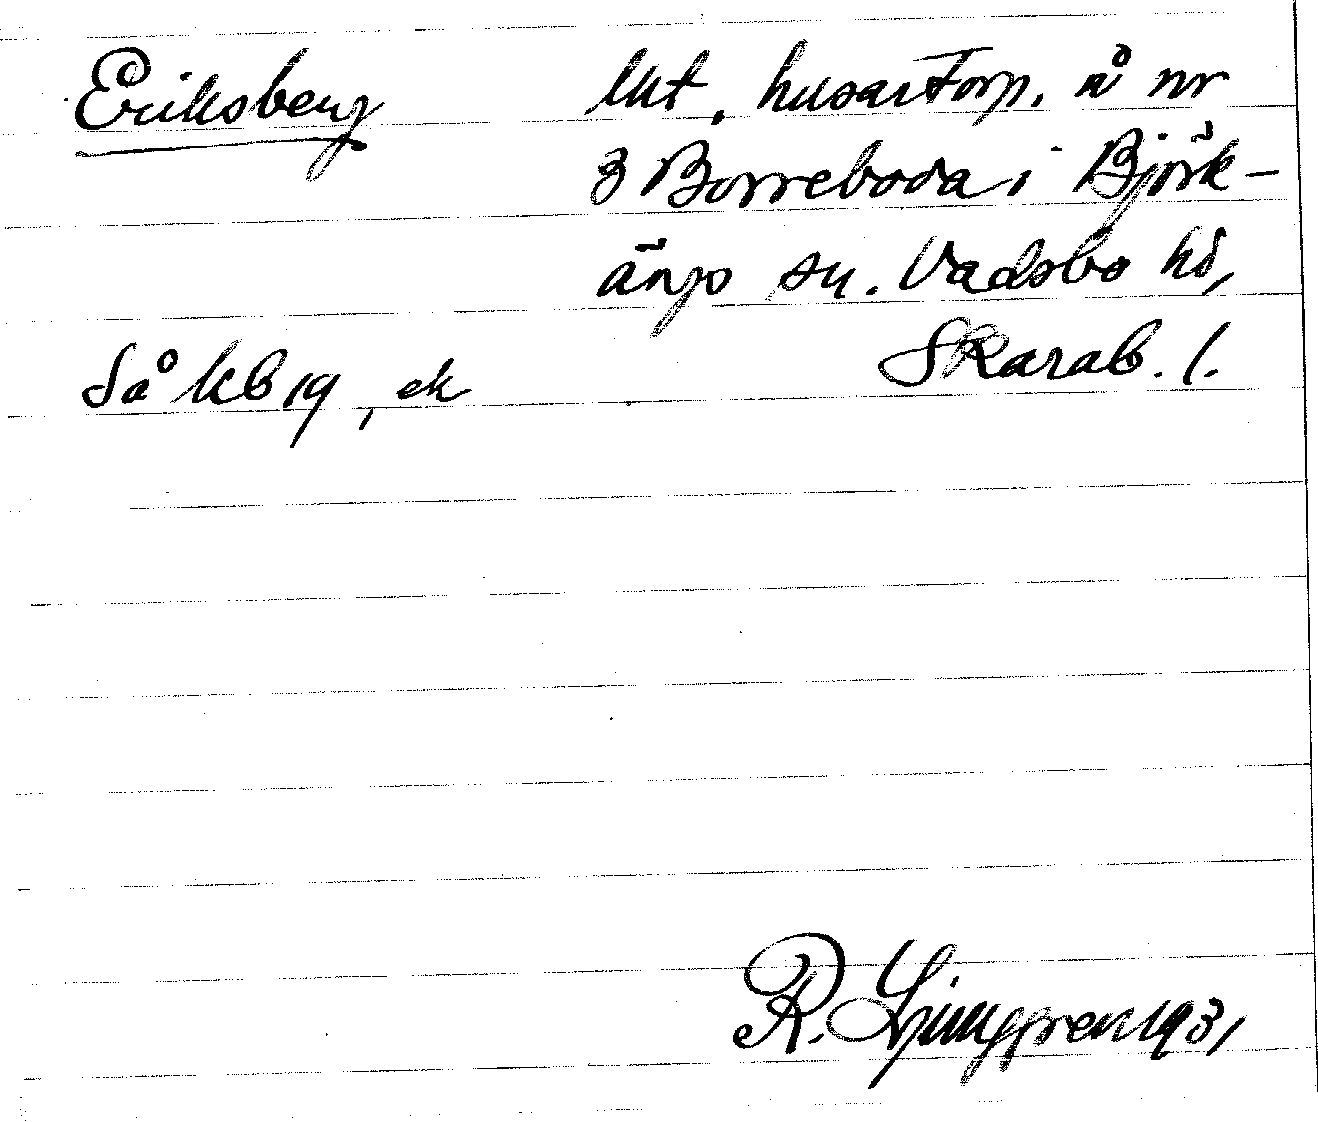 Eriksberg
lht, husartorp, å nr
3 Borreboda i Björk-
ängs sn. Vadsbo hd,
Skarab. l.
Så kb 19, ek
R. Ljunggren 1931